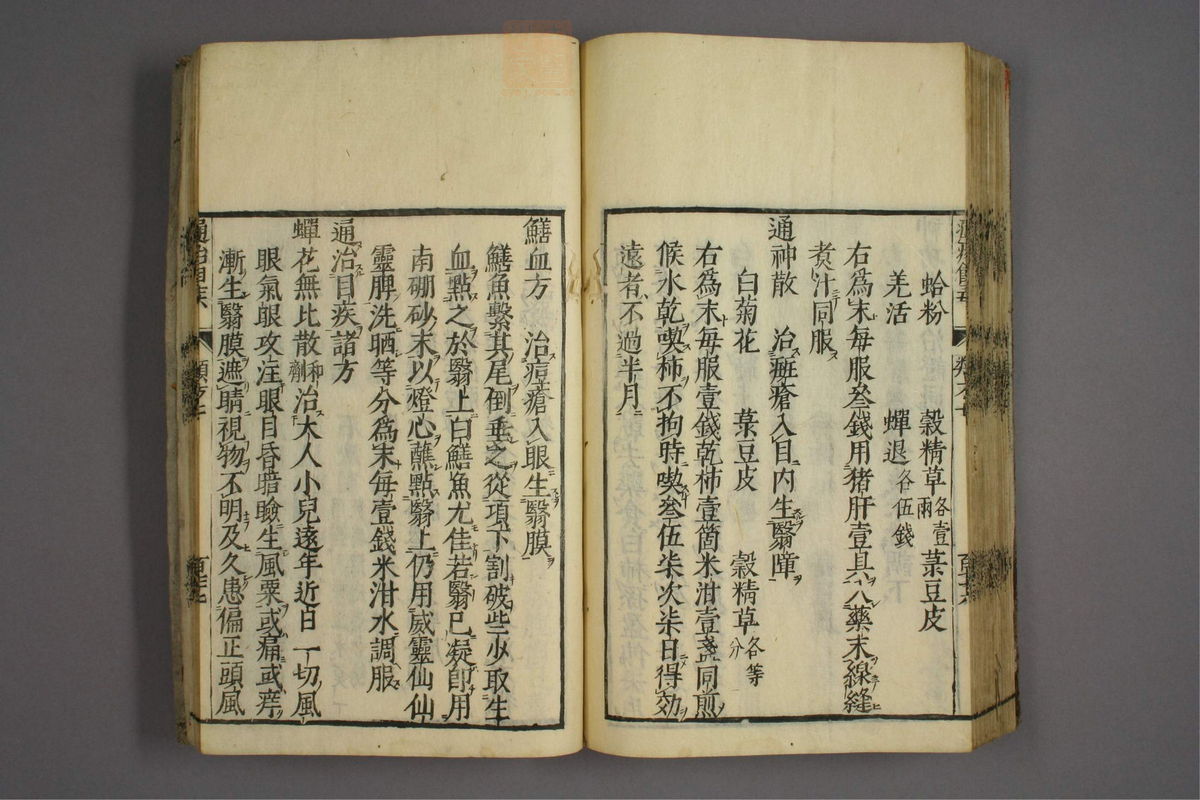 蛤粉 穀精草各壹兩 菉豆皮
羌活 蟬退各伍錢
右爲末每服叁錢用猪肝壹具入藥末線縫
煑汁同服
通神散 治斑瘡入目内生翳障
白菊花 菉豆皮 穀精草各等分
右爲末每服壹錢乾柿壹箇米泔壹盞同煎
候水乾喫柿不拘時喫叁伍柒次柒日得効
遠者不過半月
鱔血方 治痘瘡入眼生翳膜
鱔魚繫其尾倒垂之從項下割破些少取生
血點之於翳上白鱔魚尤佳若翳已凝即用
南硼砂末以燈心蘸點翳上仍用威靈仙仙
靈脾洗晒等分爲末每壹錢米泔水調服
通治目疾諸方
蟬花無比散和劑 治大人小兒遠年近日一切風
眼氣眼攻注眼目昏暗瞼生風粟或痛或痒
漸生翳膜遮睛視物不明及久患偏正頭風
通治目疾 類之七